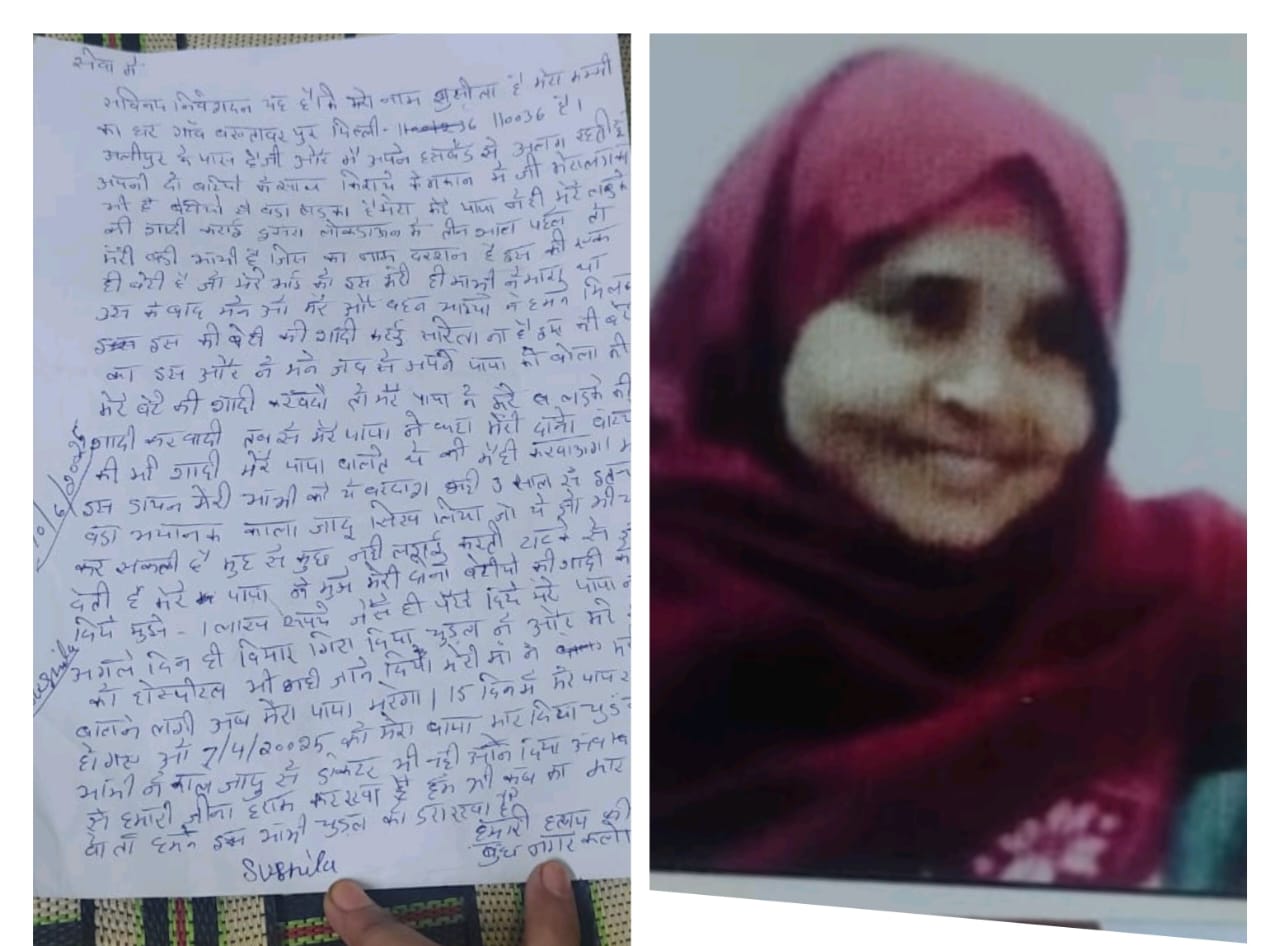 सेवा में
सविनय निवेदन यह है कि मेरा नाम सुशीला है मेरा मम्मी
का घर गाँव बख्तावर पुर दिल्ली- 110036 है।
अलीपुर के पास है जी और मैं अपने हसबैंड से अलग रहती हूँ
अपनी दो बेटियों के साथ किराये के मकान में जी मेरा लड़का
भी है बेटीयों से बड़ा लड़का है मेरा मेरे पापा ने ही मेरे लड़के
की शादी कराई तीन साल पहले तो
मेरी बड़ी भाभी है जिस का नाम दरशन है इस की एक
ही बेटी है जी मेरे भाई को इस मेरी ही भाभी ने मारा था
उस के बाद मैंने और मेरे और बहन भाइयों ने हमने मिलक
इस की बेटी की शादी करई सरिता ना है इस की बेटी
का इस और ने मैंने जब से अपने पापा को बोला की
मेरे बेटे की शादी करवादो तो मेरे पापा ने मेरे लड़के की
शादी करवादी तब से मेरे पापा ने कहा मेरी दोनों
की भी शादी मेरे पापा बोलते थे की मैं ही करवाऊगा
इस डायन मेरी भाभी को ये बरदाश नही 3 साल से इसने
बड़ा भयानक काला जादू सिख लिया जो ये
कर सकती है मुह से कुछ नही लड़ाई करती टोटके से
देती है मेरे पापा ने मुझे मेरी दोनो बेटीयो की शादी के
दिये मुझे - 1 लाख रूपये जैसे ही पैसे दिये मेरे पापा ने
अगले दिन ही बिमार गिरा दिया चुडैल ने और मेरे
को होस्पीटल भी नही जाने दिया मेरी माँ ने
बोलने लगी अब मेरा पापा मरेगा। 15 दिन में मेरे पापा
हो गए औ 7/4/20025 को मेरा पापा मार दिया
भाभी ने काल जादु से डॉकटर भी नही आने दिया
से हमारी जीना हराम कर रखा है हम भी कब का मार
इस भाभी चुडैल का डरा रखा है
हमारी
Sushila
बुध नगर कलो
10/6/20025
Sushila